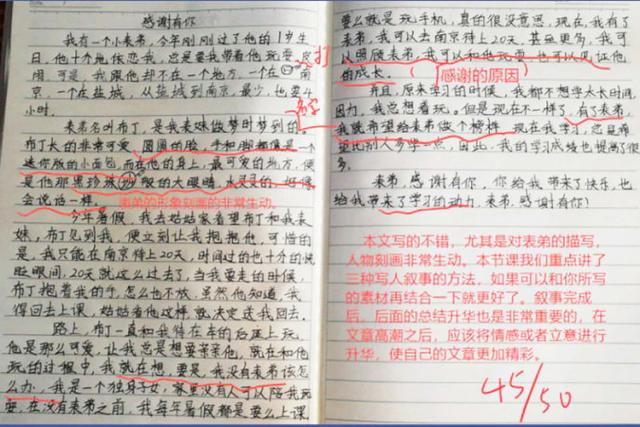 感谢有你
我有一个小表弟,今年刚刚过了他的1岁生
日,他十分地依恋我,总是要我带着他玩耍
闹,可是,我跟他却不在一个地方,一个在
京,一个在盐城,从盐城到南京,最少,也要4
小时。
打
名字
表弟名叫布丁,是我表妹做梦时梦到的
布丁长的非常可爱,圆圆的脸,手和脚都像是一个
迷你版的小面包,而在他的身上,最可爱的地方,便
是他那黑珍珠般的大眼睛,水灵灵的,好像
会说话一样。
表弟的形象刻画的非常生动。
今年暑假,我去姑姑家看望布丁和我表
妹,布丁见到我,便立刻让我抱抱他,可惜的
是,我只能在南京待上20天,时间过的也十分的快
眨眼间,20天就这么过去了,当我要走的时候,
布丁抱着我的手,怎么也不放,虽然他知道,我
得回去上课,姑姑看他这样,就决定送我回去。
路上,布丁一直和我待在车的后座上玩,
他是那么可爱,让我总是想要亲亲他,就在和他
玩的过程中,我就在想,要是,我没有表弟该怎
么办,我是一个独身子女,家里没有人可以陪我玩
耍,在没有表弟之前,我每年暑假都是要么上课,
要么就是玩手机,真的很没意思,现在,我有了
表弟,我可以去南京待上20天,甚至更多,我可
以照顾表弟,我可以和他玩耍,也可以见证他
的成长。
感谢的原因
并且,原来学习的时候,我都不想学太长时间
因为,我总想着玩。但是现在不一样了,有了表弟,
我就希望给表弟做个榜样,现在我学习,总是希
望比别人多学一点,由此,我的学习成绩也提高了很
多。
表弟,感谢有你,你给我带来了快乐,也
给我带来了学习的动力,表弟,感谢有你!
本文写的不错,尤其是对表弟的描写,
人物刻画非常生动。本节课我们重点讲了
三种写人叙事的方法,如果可以和你所写
的素材再结合一下就更好了。叙事完成
后,后面的总结升华也是非常重要的,在
文章高潮之后,应该将情感或者立意进行
升华,使自己的文章更加精彩。
45/50